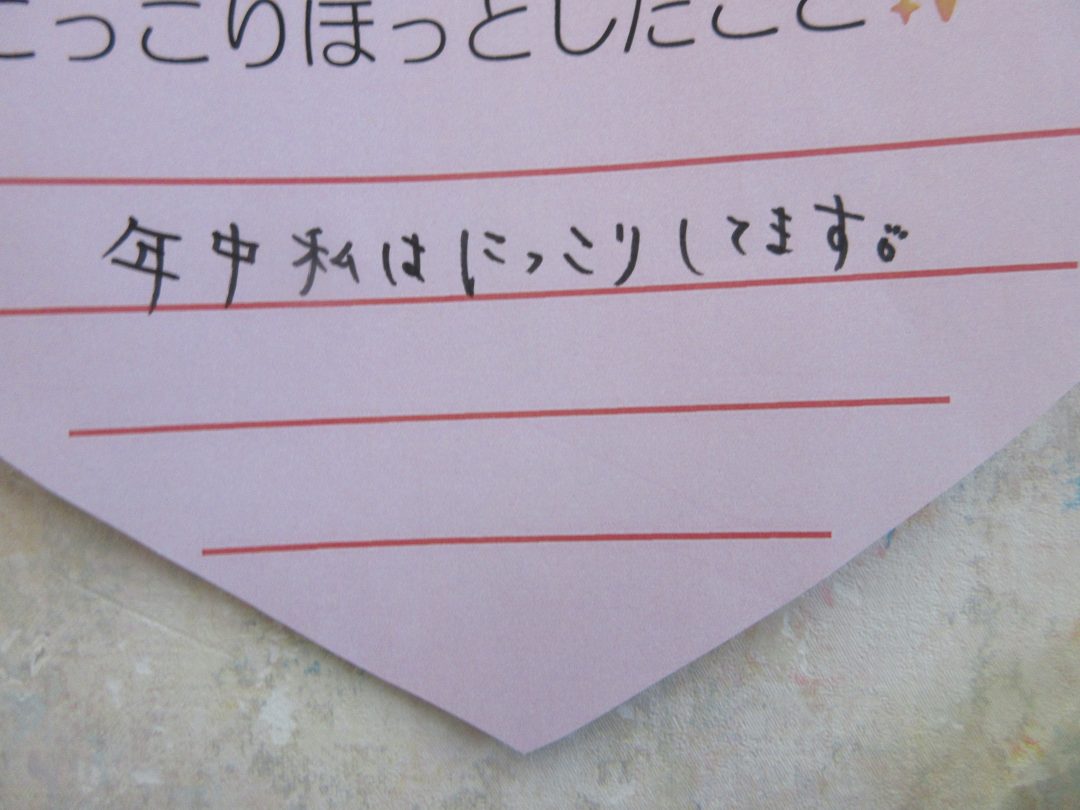 にっこりほっとしたこと✨
年中私はにっこりしてます。